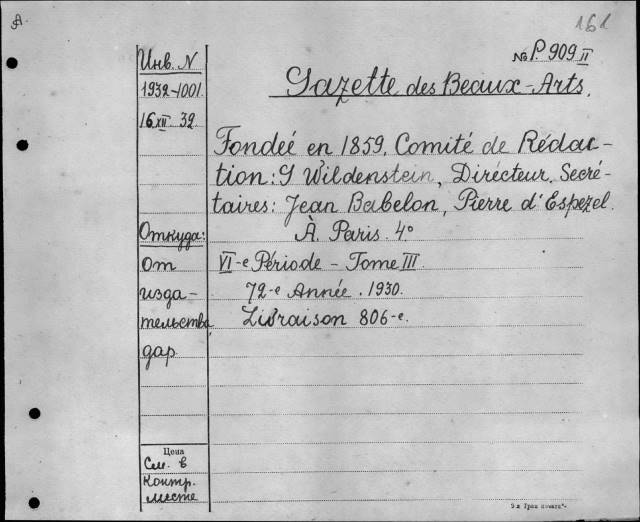 А
161
Инв. N
№ P. 909 II
Gazette des Beaux-Arts.
1932-1001.
16 XII 32
Fondeé en 1859. Comité de Rédac-
tion: G Wildenstein, Dirécteur, Secré-
taires: Jean Babelon, Pierre d'Espezel.
À Paris. 4°
Откуда:
От
изда-
тельства
дар
VI-e Période - Tome III.
72-e Année. 1930.
Livraison 806-e.
Цена
См. в
Контр.
месте